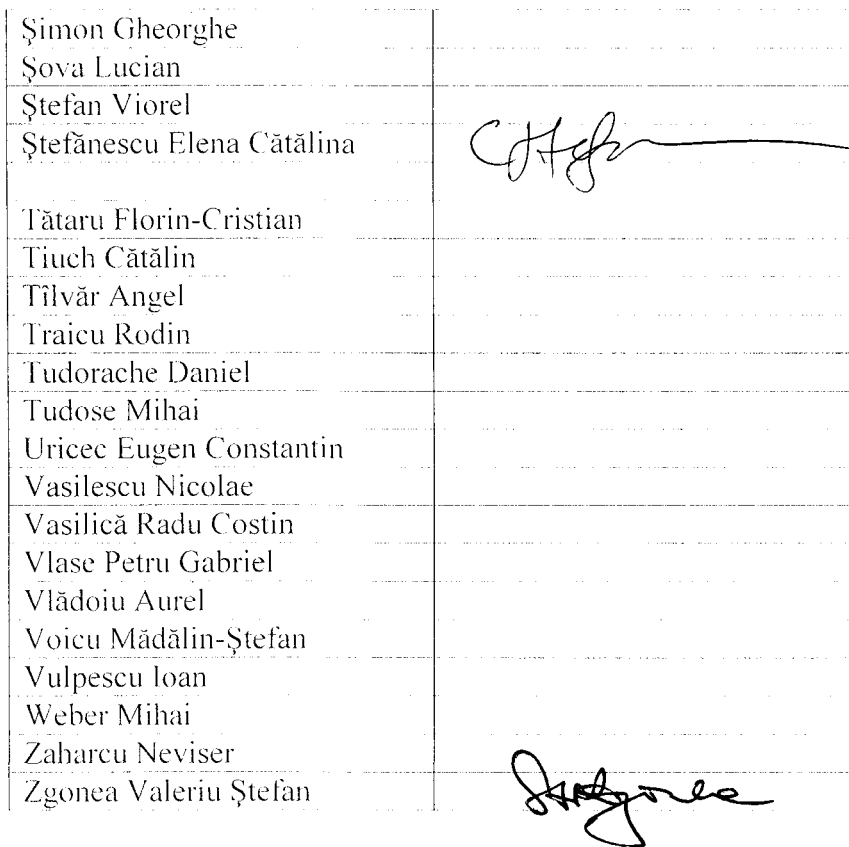 Şimon Gheorghe
Şova Lucian
Ştefan Viorel
Ştefănescu Elena Cătălina
Tătaru Florin-Cristian
Tiuch Cătălin
Tîlvăr Angel
Traicu Rodin
Tudorache Daniel
Tudose Mihai
Uricec Eugen Constantin
Vasilescu Nicolae
Vasilică Radu Costin
Vlase Petru Gabriel
Vlădoiu Aurel
Voicu Mădălin-Ştefan
Vulpescu Ioan
Weber Mihai
Zaharcu Neviser
Zgonea Valeriu Ştefan